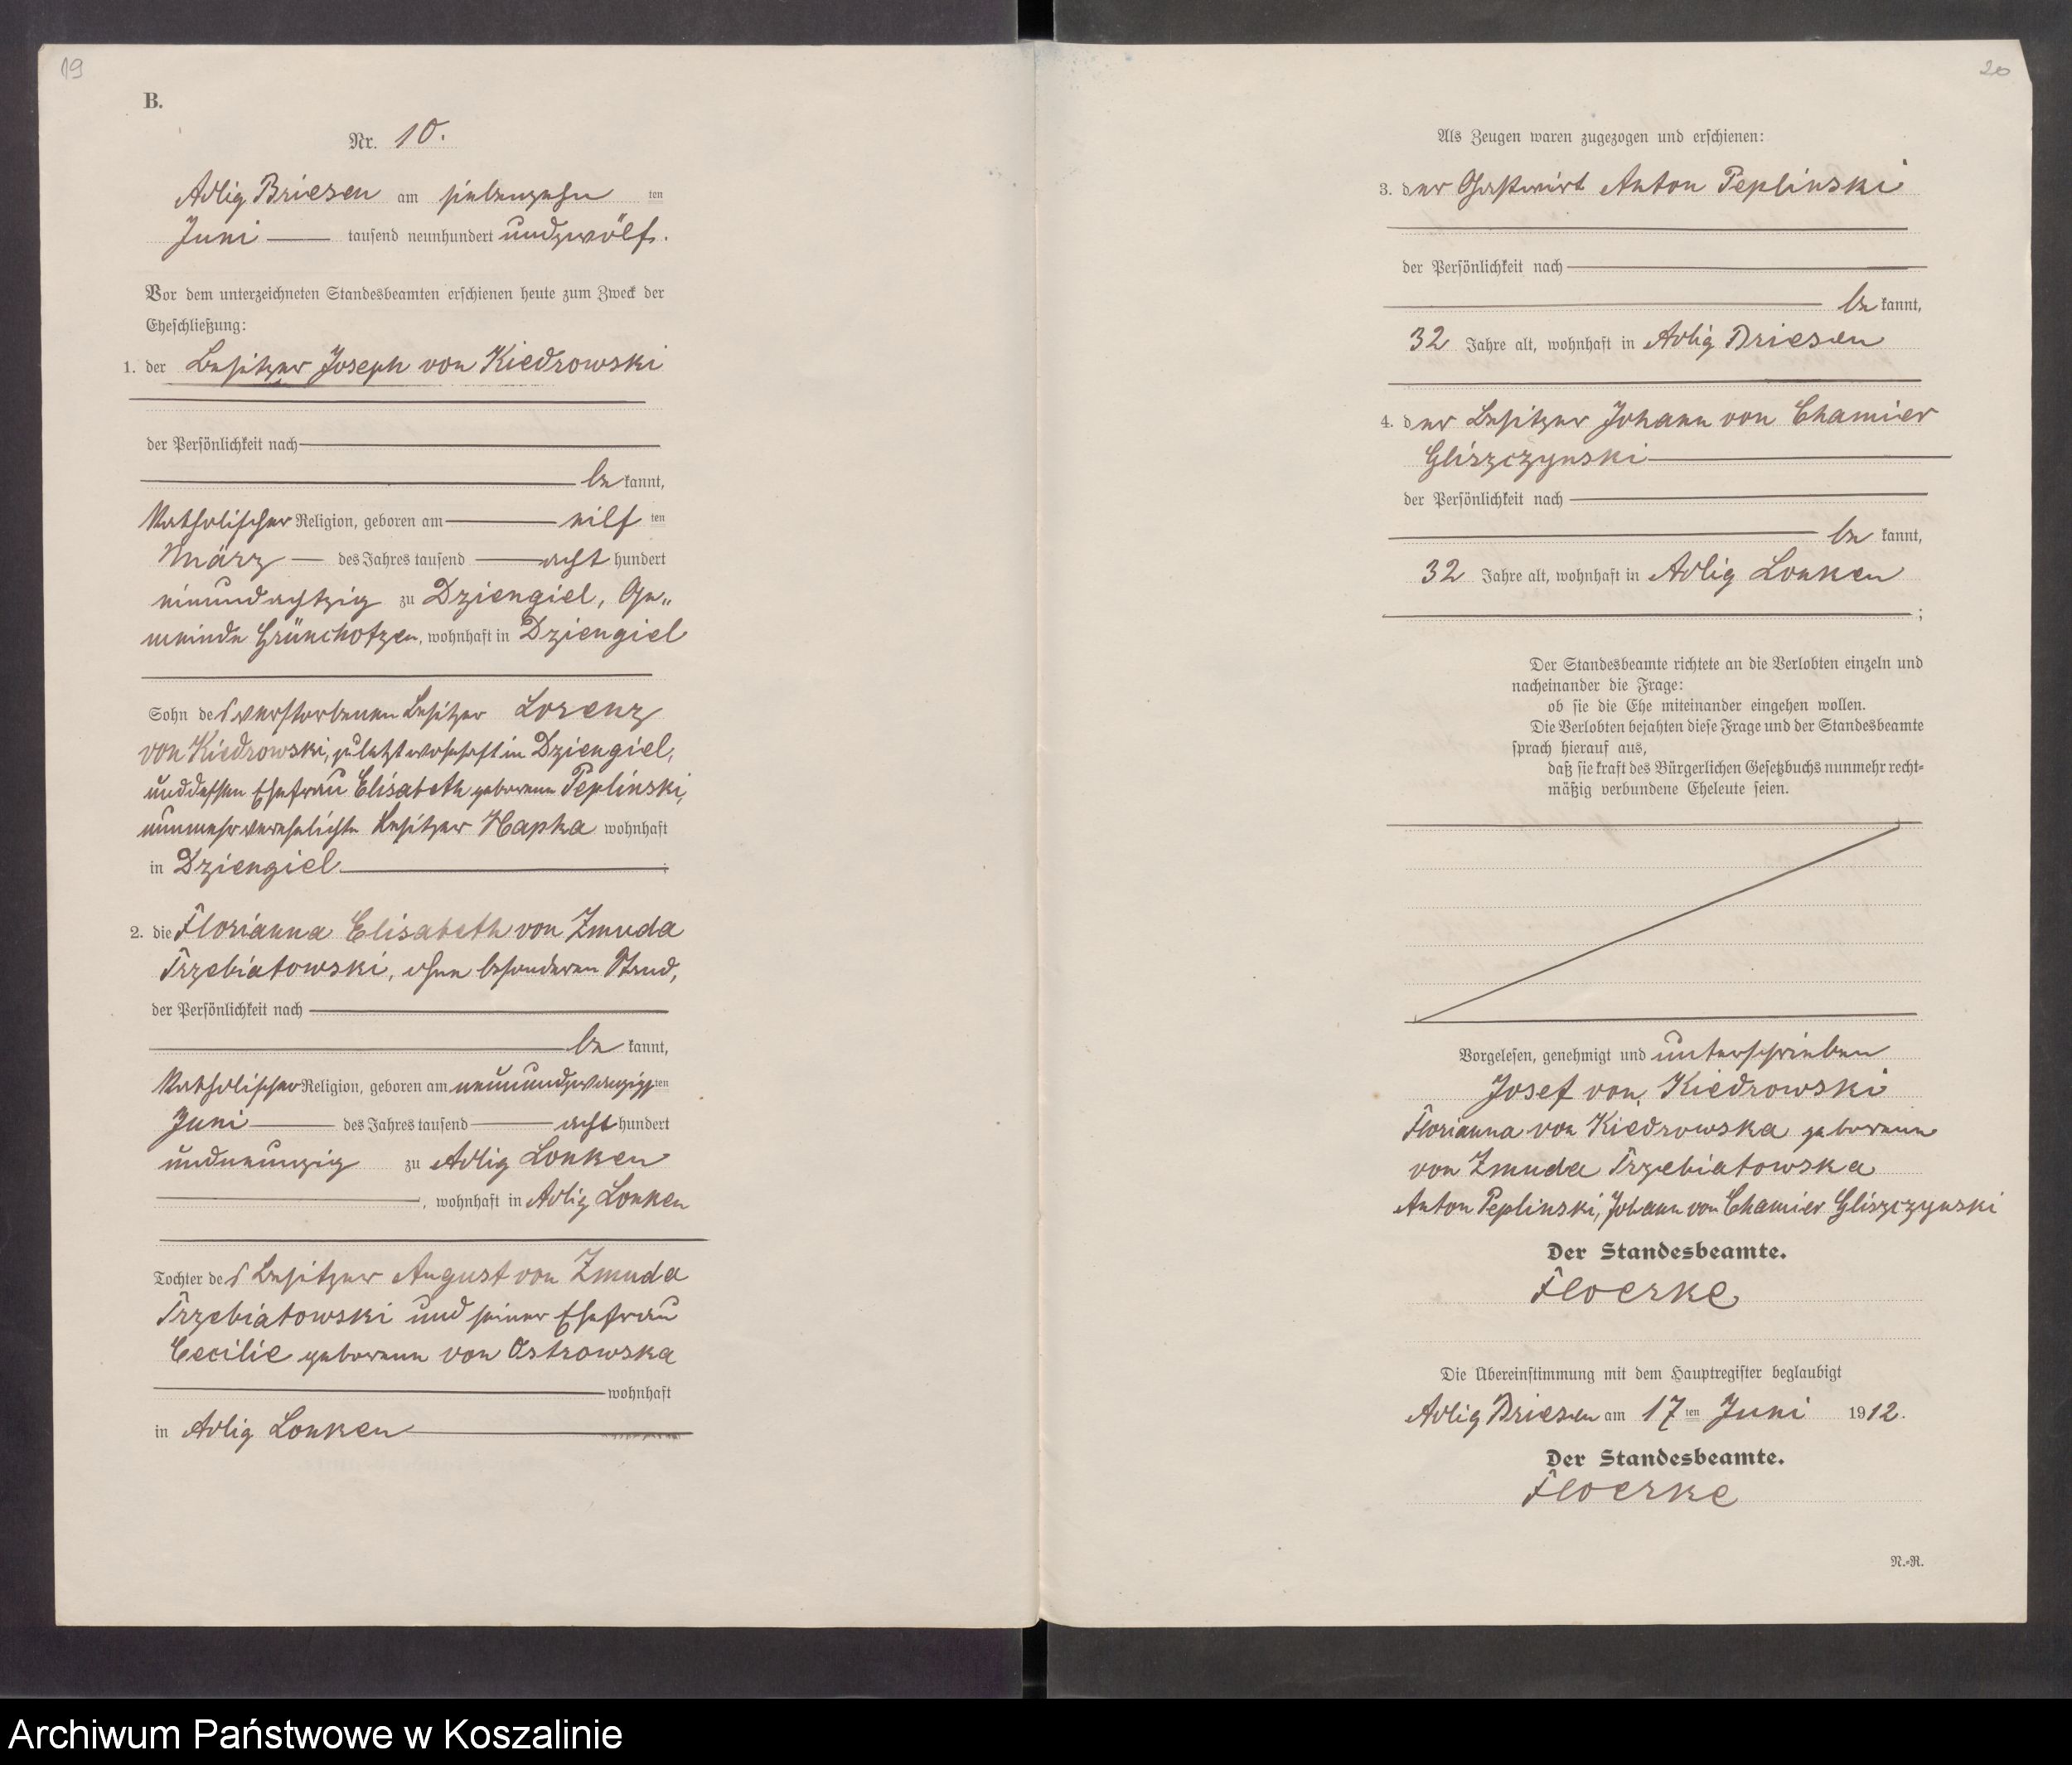 19
B.
Nr. 10.
Adlig Briesen am siebenzehnten
Juni tausend neunhundert undzwölf.
Vor dem unterzeichneten Standesbeamten erschienen heute zum Zweck der
Eheschließung:
1. der Besitzer Joseph von Kiedrowski
der Persönlichkeit nach
be kannt,
katholischer Religion, geboren am eilf ten
März des Jahres tausend acht hundert
einundachtzig zu Dziengiel, Ge„
meinde Grünchotzen, wohnhaft in Dziengiel
Sohn des verstorbenen Besitzer Lorenz
von Kiedrowski, zuletzt wohnhaft in Dziengiel,
und dessen Ehefrau Elisabeth geborene Peplinski,
nunmehr verehelichte Besitzer Hapka wohnhaft
in Dziengiel
2. die Florianna Elisabeth von Zmuda
Trzebiatowski, ohne besonderen Stand,
der Persönlichkeit nach
be kannt,
katholischer Religion, geboren am neunundzwanzigsten
Juni des Jahres tausend acht hundert
undneunzig zu Adlig Lonken
, wohnhaft in Adlig Lonken
Tochter des Besitzer August von Zmuda
Trzebiatowski und seiner Ehefrau
Cecilie geborene von Ostrowska
wohnhaft
in Adlig Lonken
20
Als Zeugen waren zugezogen und erschienen:
3. der Gastwirt Anton Peplinski
der Persönlichkeit nach
be kannt,
32 Jahre alt, wohnhaft in Adlig Briesen
4. der Besitzer Johann von Chamier
Gliszczynski
der Persönlichkeit nach
be kannt,
32 Jahre alt, wohnhaft in Adlig Lonken
;
Der Standesbeamte richtete an die Verlobten einzeln und
nacheinander die Frage:
ob sie die Ehe miteinander eingehen wollen.
Die Verlobten bejahten diese Frage und der Standesbeamte
sprach hierauf aus,
daß sie kraft des Bürgerlichen Gesetzbuchs nunmehr recht-
mäßig verbundene Eheleute seien.
Vorgelesen, genehmigt und unterschrieben
Josef von Kiedrowski
Florianna von Kiedrowska geborene
von Zmuda Trzebiatowska
Anton Peplinski, Johann von Chamier Gliszczynski
Der Standesbeamte.
Floerke
Die Übereinstimmung mit dem Hauptregister beglaubigt
Adlig Briesen am 17 ten Juni 1912.
Der Standesbeamte.
Floerke
N.-R.
Archiwum Państwowe w Koszalinie